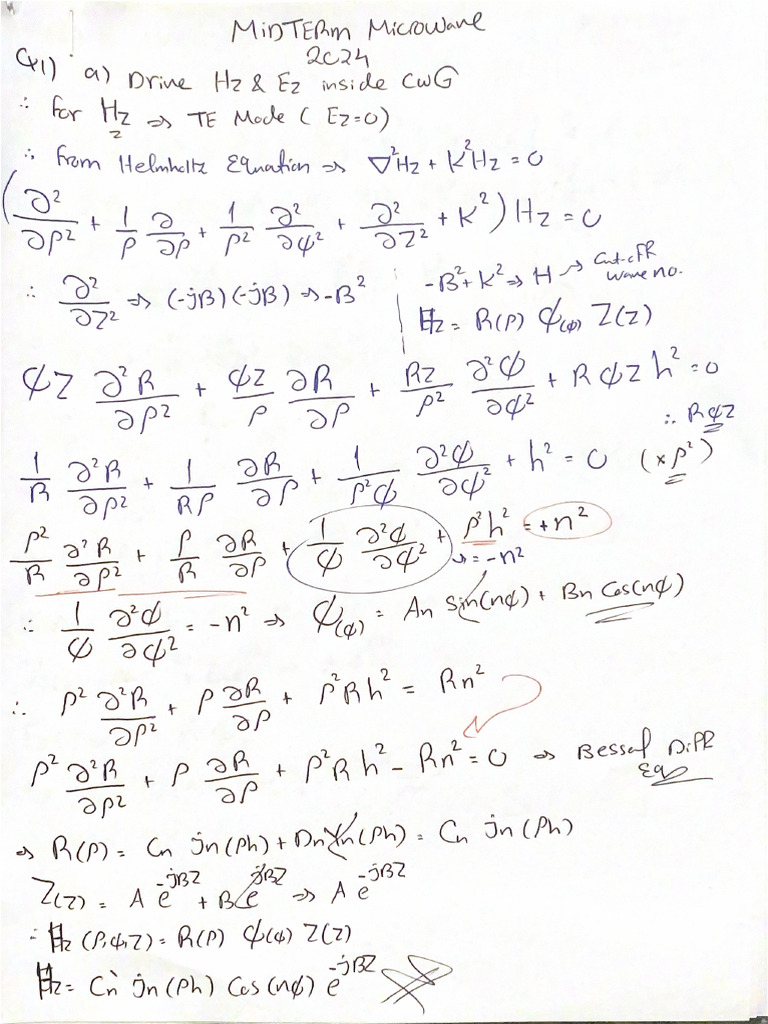 MidTERM Microwave
2024
Q1) a) Drive Hz & Ez inside CWG
∴ for Hz ⇒ TE Mode ( Ez=0)
∴ from Helmholtz Equation ⇒ ∇²Hz + K²Hz = 0
(∂²/∂ρ² + 1/ρ ∂/∂ρ + 1/ρ² ∂²/∂φ² + ∂²/∂Z² + K²) Hz = 0
∴ ∂²/∂Z² ⇒ (-jB)(-jB) ⇒ -B²
-B² + K² ⇒ H → Cut-off wave no.
Hz = R(ρ) φ(φ) Z(Z)
φZ ∂²R/∂ρ² + φZ/ρ ∂R/∂ρ + RZ/ρ² ∂²φ/∂φ² + RφZ h² = 0
∴ RφZ
1/R ∂²R/∂ρ² + 1/Rρ ∂R/∂ρ + 1/ρ²φ ∂²φ/∂φ² + h² = 0 (×ρ²)
ρ²/R ∂²R/∂ρ² + ρ/R ∂R/∂ρ + 1/φ ∂²φ/∂φ² + ρ²h² = +n²
↳ = -n²
∴ 1/φ ∂²φ/∂φ² = -n² ⇒ φ(φ) = An Sin(nφ) + Bn Cos(nφ)
∴ ρ² ∂²R/∂ρ² + ρ ∂R/∂ρ + ρ²Rh² = Rn²
ρ² ∂²R/∂ρ² + ρ ∂R/∂ρ + ρ²Rh² - Rn² = 0 ⇒ Bessel Diff Eq
⇒ R(ρ) = Cn Jn(ρh) + Dn Yn(ρh) = Cn Jn(ρh)
Z(Z) = A e^-jBZ + B e^jBZ ⇒ A e^-jBZ
∴ Hz (ρ,φ,Z) = R(ρ) φ(φ) Z(Z)
Hz = Cn` Jn(ρh) Cos(nφ) e^-jBZ